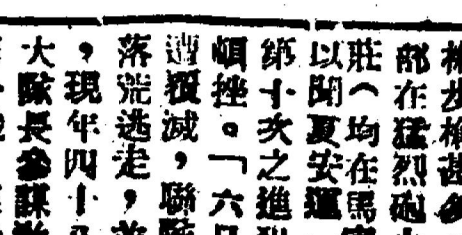 步槍甚
部在猛烈砲
莊（均在馬
以聞夏安運
第十次之進
頓挫。「六
遭覆滅，聯
落荒逃走，
，現年四十
大隊長參謀